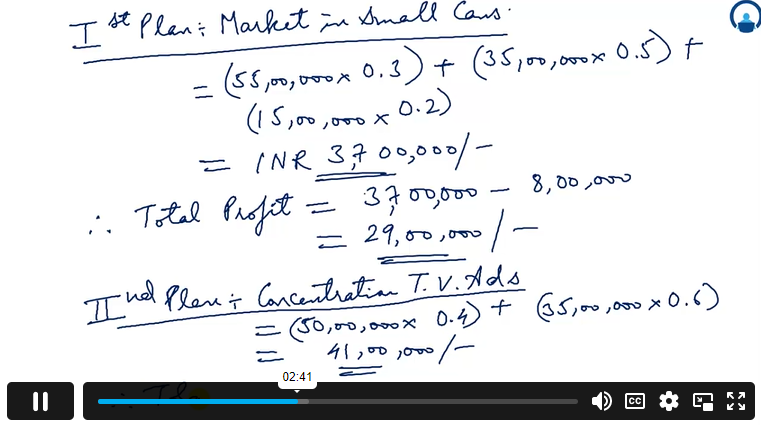 Ist Plan ÷ Market in Small Cans.
= (55,00,000 x 0.3) + (35,00,000 x 0.5) +
(15,00,000 x 0.2)
= INR 3,700,000/-
∴ Total Profit = 3,700,000 - 8,00,000
= 29,00,000/-
IInd Plan ÷ Concentration T.V. Ads
= (50,00,000 x 0.4) + (35,00,000 x 0.6)
= 41,00,000/-
02:41
CC